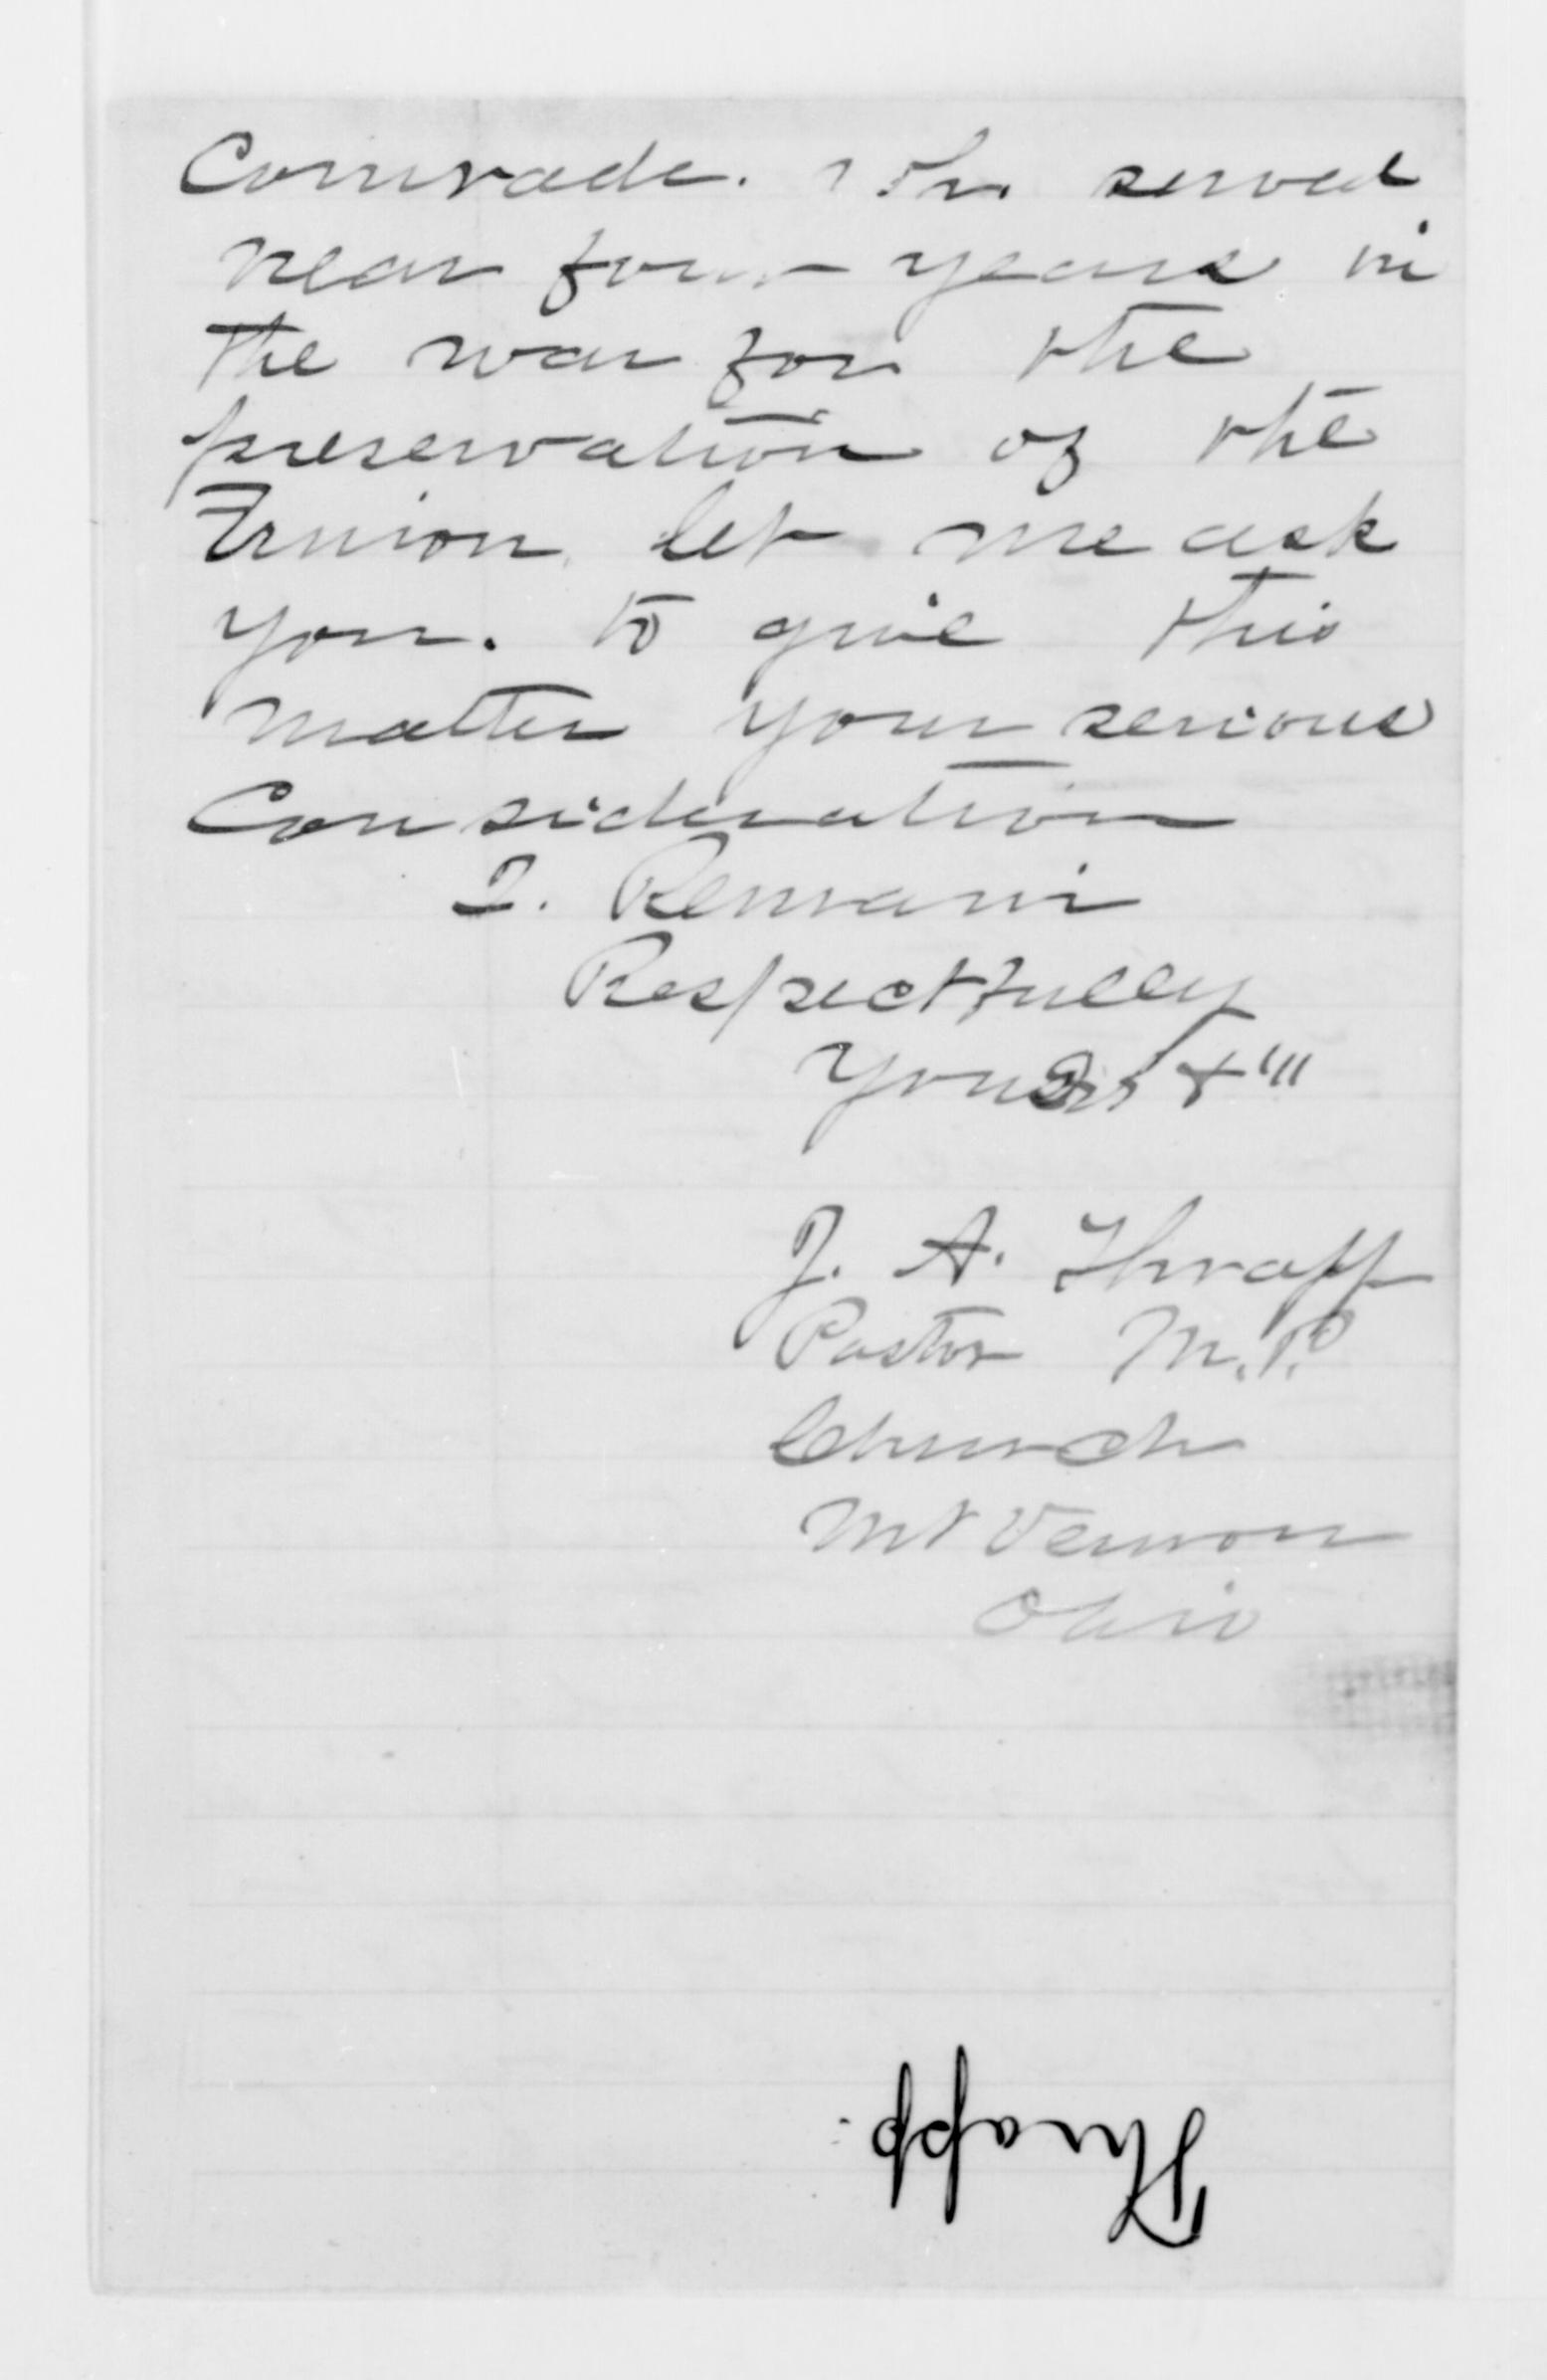 Comrade. served
near four years in
the war for the
preservation of the
Union, let me ask
you. to give this
matter your serious
Consideration
I. Remain
Respectfully
Yours
J. A. Thrapp
Pastor M.P.
Church
Mt Vernon
Ohio
Thrapp.